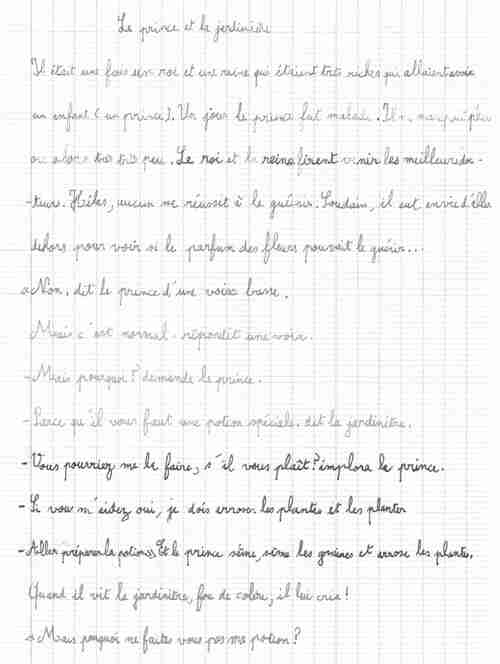 Le prince et la jardinière
Il était une fois un roi et une reine qui étaient très riches qui allaient avoir
un enfant (un prince). Un jour le prince fut malade. Il ne mangeait plus
ou alors très très peu. Le roi et la reine firent venir les meilleurs doc-
-teurs. Hélas, aucun ne réussit à le guérir. Soudain, il eut envie d'aller
dehors pour voir si le parfum des fleurs pouvait le guérir...
« Non, dit le prince d'une voix basse.
Mais c'est normal. répondit une voix.
- Mais pourquoi? demande le prince.
- Parce qu'il vous faut une potion spéciale. dit la jardinière.
- Vous pourriez me la faire, s'il vous plaît? implora le prince.
- Si vous m'aidez oui, je dois arroser les plantes et les planter
- Aller préparer la potion» Et le prince sème, sème les graines et arrose les plantes.
Quand il vit la jardinière, fou de colère, il lui cria!
« Mais pourquoi ne faites vous pas ma potion?